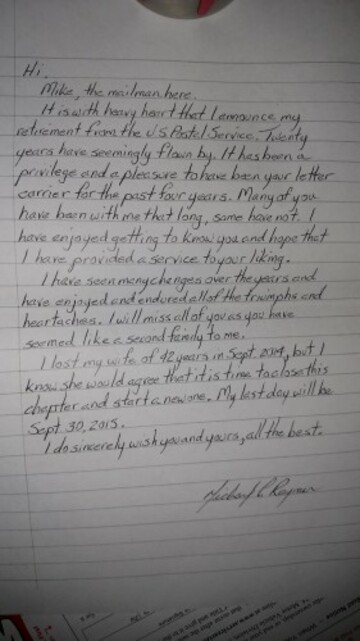 Hi,
Mike, the mailman here.
It is with heavy heart that I announce my
retirement from the U.S. Postal Service. Twenty
years have seemingly flown by. It has been a
privilege and a pleasure to have been your letter
carrier for the past four years. Many of you
have been with me that long, some have not. I
have enjoyed getting to know you and hope that
I have provided a service to your liking.
I have seen many changes over the years and
have enjoyed and endured all of the triumphs and
heartaches. I will miss all of you as you have
seemed like a second family to me.
I lost my wife of 42 years in Sept. 2014, but I
know she would agree that it is time to close this
chapter and start a new one. My last day will be
Sept 30, 2015.
I do sincerely wish you and yours, all the best.
Michael C